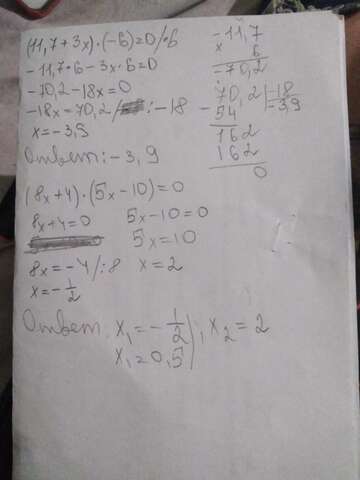 (11,7+3x)·(-6)=0/·6
-11,7·6-3x·6=0
-70,2-18x=0
-18x=70,2/:-18
x=-3,9
Ответ:-3,9
-11,7
x 6
-70,2
70,2|-18
54 -3,9
162
162
0
(8x+4)·(5x-10)=0
8x+4=0 5x-10=0
5x=10
8x=-4/:8 x=2
x=-1/2
Ответ. x₁=-1/2|; x₂=2
x₁=0,5